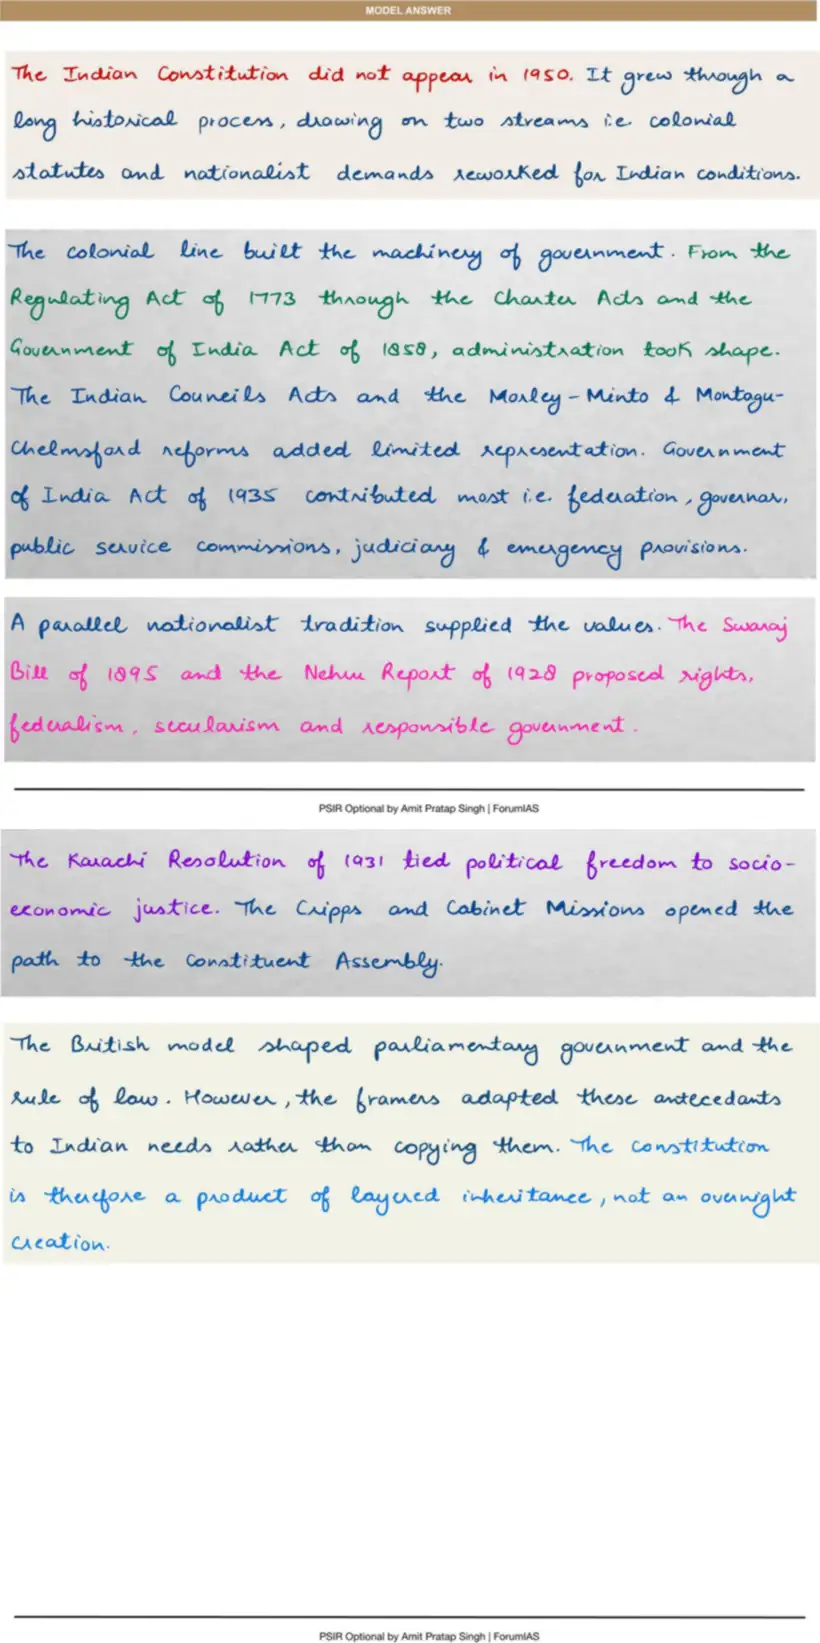 MODEL ANSWER
The Indian Constitution did not appear in 1950. It grew through a
long historical process, drawing on two streams i.e. colonial
statutes and nationalist demands reworked for Indian conditions.
The colonial line built the machinery of government. From the
Regulating Act of 1773 through the Charter Acts and the
Government of India Act of 1858, administration took shape.
The Indian Councils Acts and the Morley-Minto & Montagu-
Chelmsford reforms added limited representation. Government
of India Act of 1935 contributed most i.e. federation, governor,
public service commissions, judiciary & emergency provisions.
A parallel nationalist tradition supplied the values. The Swaraj
Bill of 1895 and the Nehru Report of 1928 proposed rights,
federalism, secularism and responsible government.
PSIR Optional by Amit Pratap Singh | ForumIAS
The Karachi Resolution of 1931 tied political freedom to socio-
economic justice. The Cripps and Cabinet Missions opened the
path to the Constituent Assembly.
The British model shaped parliamentary government and the
rule of law. However, the framers adapted these antecedants
to Indian needs rather than copying them. The Constitution
is therefore a product of layered inheritance, not an overnight
creation.
PSIR Optional by Amit Pratap Singh | ForumIAS